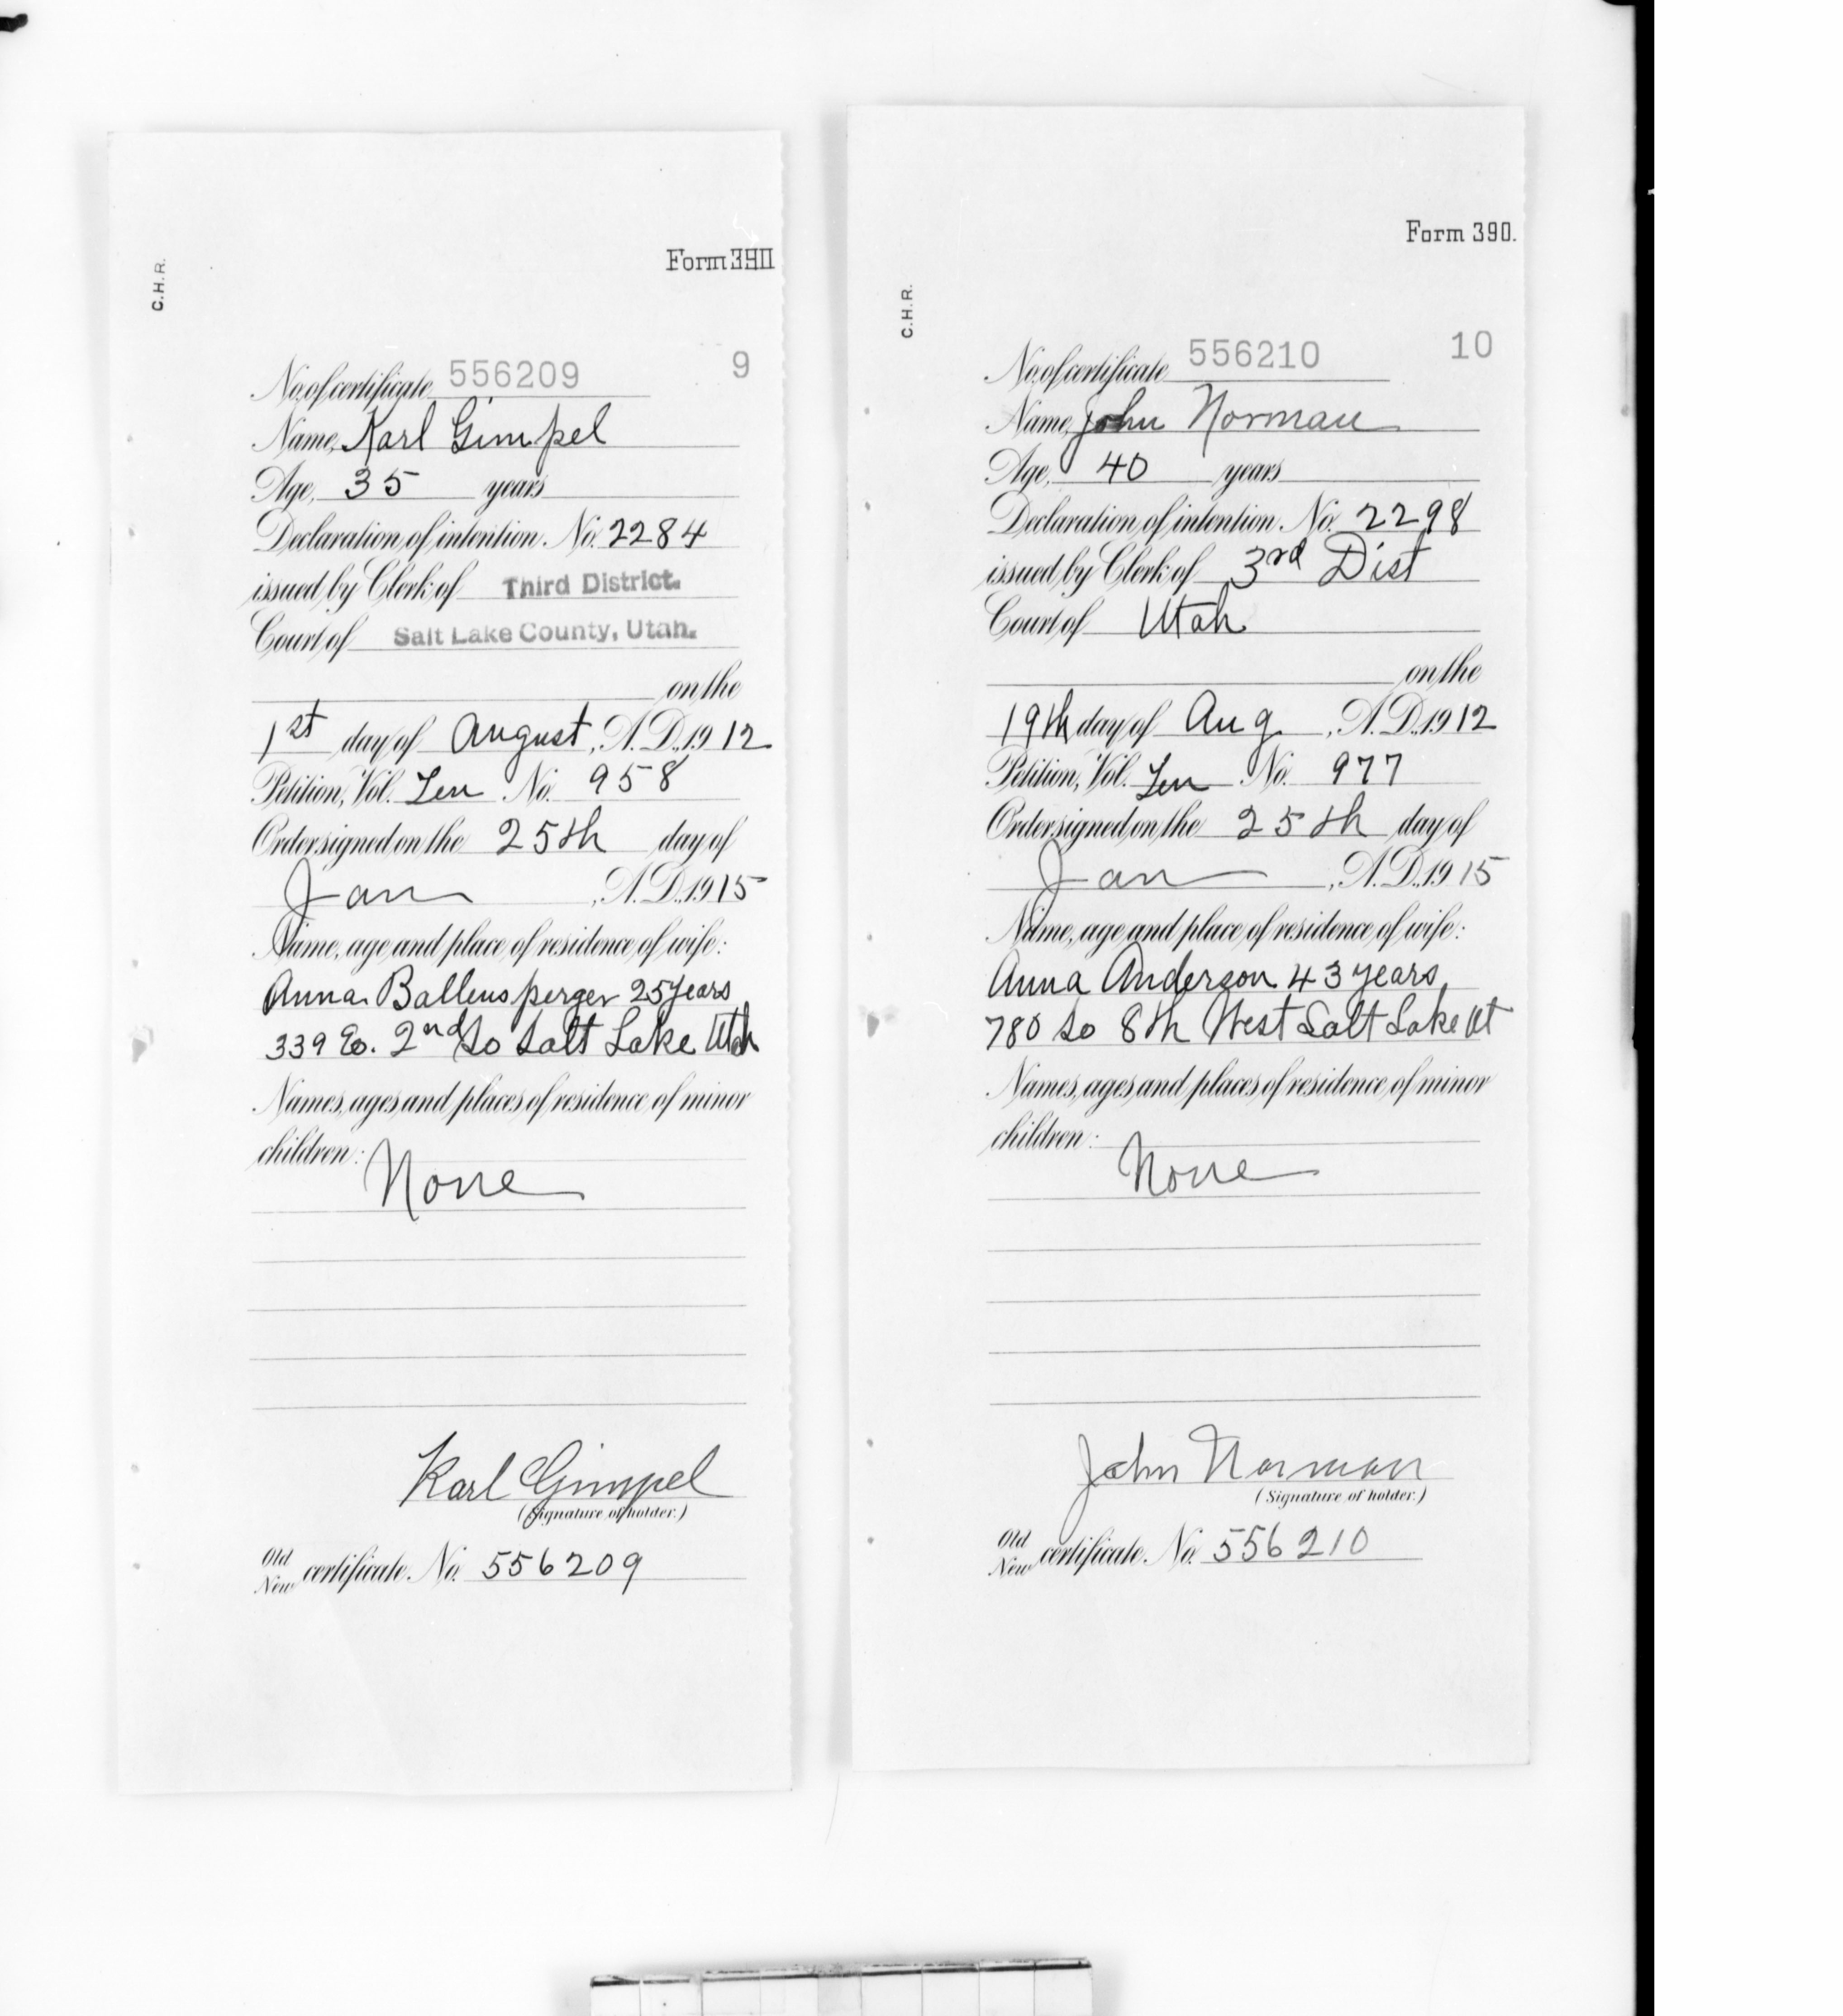 C.H.R.
Form 390
No. of certificate 556209 9
Name, Karl Gimpel
Age, 35 years
Declaration of intention No. 2284
issued by Clerk of Third District.
Court of Salt Lake County, Utah.
on the
1st day of August, A.D. 1912
Petition, Vol. Ten No. 958
Order signed on the 25th day of
Jan, A.D. 1915
Name, age and place of residence of wife:
Anna Ballensperger 25 years
339 Eo. 2nd So Salt Lake Utah
Names, ages and places of residence of minor
children:
None
Karl Gimpel
(Signature of holder.)
Old
New certificate No. 556209
C.H.R.
Form 390.
No. of certificate 556210 10
Name, John Norman
Age, 40 years
Declaration of intention No. 2298
issued by Clerk of 3rd Dist
Court of Utah
on the
19th day of Aug, A.D. 1912
Petition, Vol. Ten No. 977
Order signed on the 25th day of
Jan, A.D. 1915
Name, age and place of residence of wife:
Anna Anderson 43 years
780 So 8th West Salt Lake Ut
Names, ages and places of residence of minor
children:
None
John Norman
(Signature of holder.)
Old
New certificate No. 556210